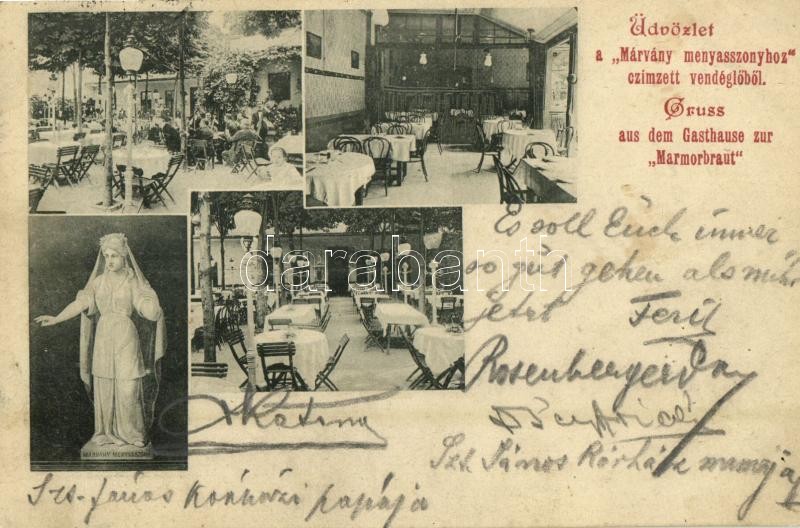 Üdvözlet
a „Márvány menyasszonyhoz"
czimzett vendéglőből.
Gruss
aus dem Gasthause zur
„Marmorbraut"
Es soll Euch immer
so gut gehen als mir
jetzt Feri
Rosenberger
Katina
Szt. János Kórház mamája
Szt-János Kórházi papája
MÁRVÁNY MENYASSZONY
darabanth